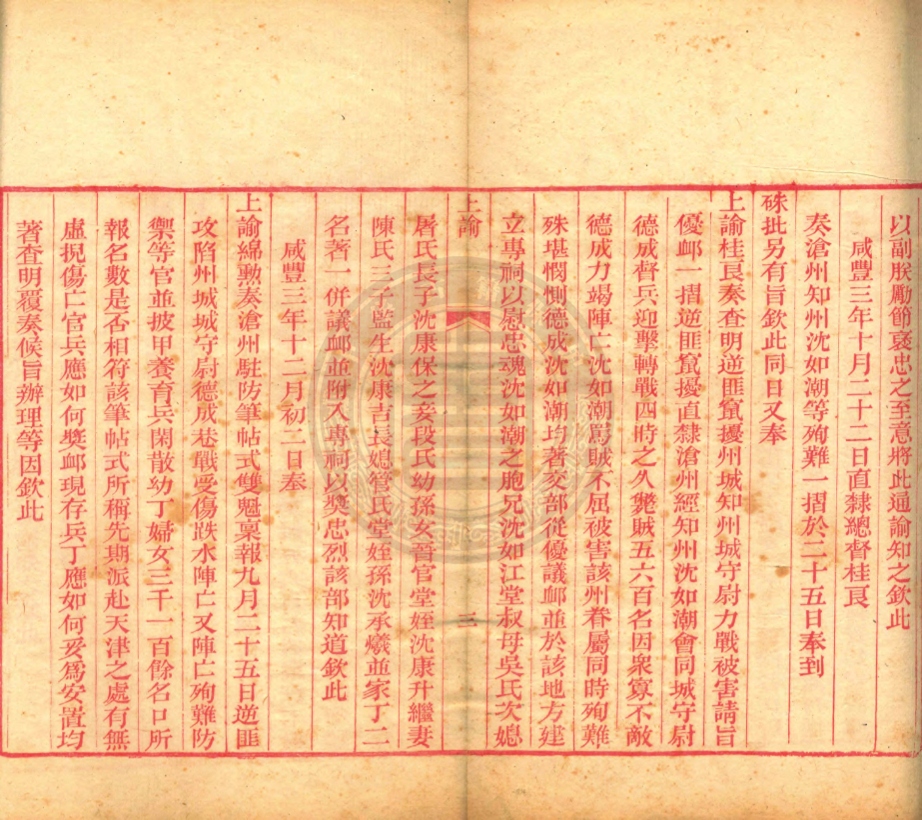 以副朕勵節褒忠之至意將此通諭知之欽此
咸豐三年十月二十二日直隸總督桂良
奏滄州知州沈如潮等殉難一摺於二十五日奉到
硃批另有旨欽此同日又奉
上諭桂良奏查明逆匪竄擾州城知州城守尉力戰被害請旨
優卹一摺逆匪竄擾直隸滄州經知州沈如潮會同城守尉
德成督兵迎擊轉戰四時之久斃賊五六百名因衆寡不敵
德成力竭陣亡沈如潮罵賊不屈被害該州眷屬同時殉難
殊堪憫惻德成沈如潮均著交部從優議卹並於該地方建
立專祠以慰忠魂沈如潮之胞兄沈如江堂叔母吳氏次媳
上諭
三
屠氏長子沈康保之妾段氏幼孫女喜官堂姪沈康升繼妻
陳氏三子監生沈康吉長媳管氏堂姪孫沈承爔並家丁二
名著一併議卹並附入專祠以獎忠烈該部知道欽此
咸豐三年十二月初二日奉
上諭綿勳奏滄州駐防筆帖式雙魁稟報九月二十五日逆匪
攻陷州城城守尉德成巷戰受傷跌水陣亡又陣亡殉難防
禦等官並披甲養育兵閑散幼丁婦女三千一百餘名口所
報名數是否相符該筆帖式所稱先期派赴天津之處有無
虛捏傷亡官兵應如何獎卹現存兵丁應如何妥爲安置均
著查明覆奏候旨辦理等因欽此